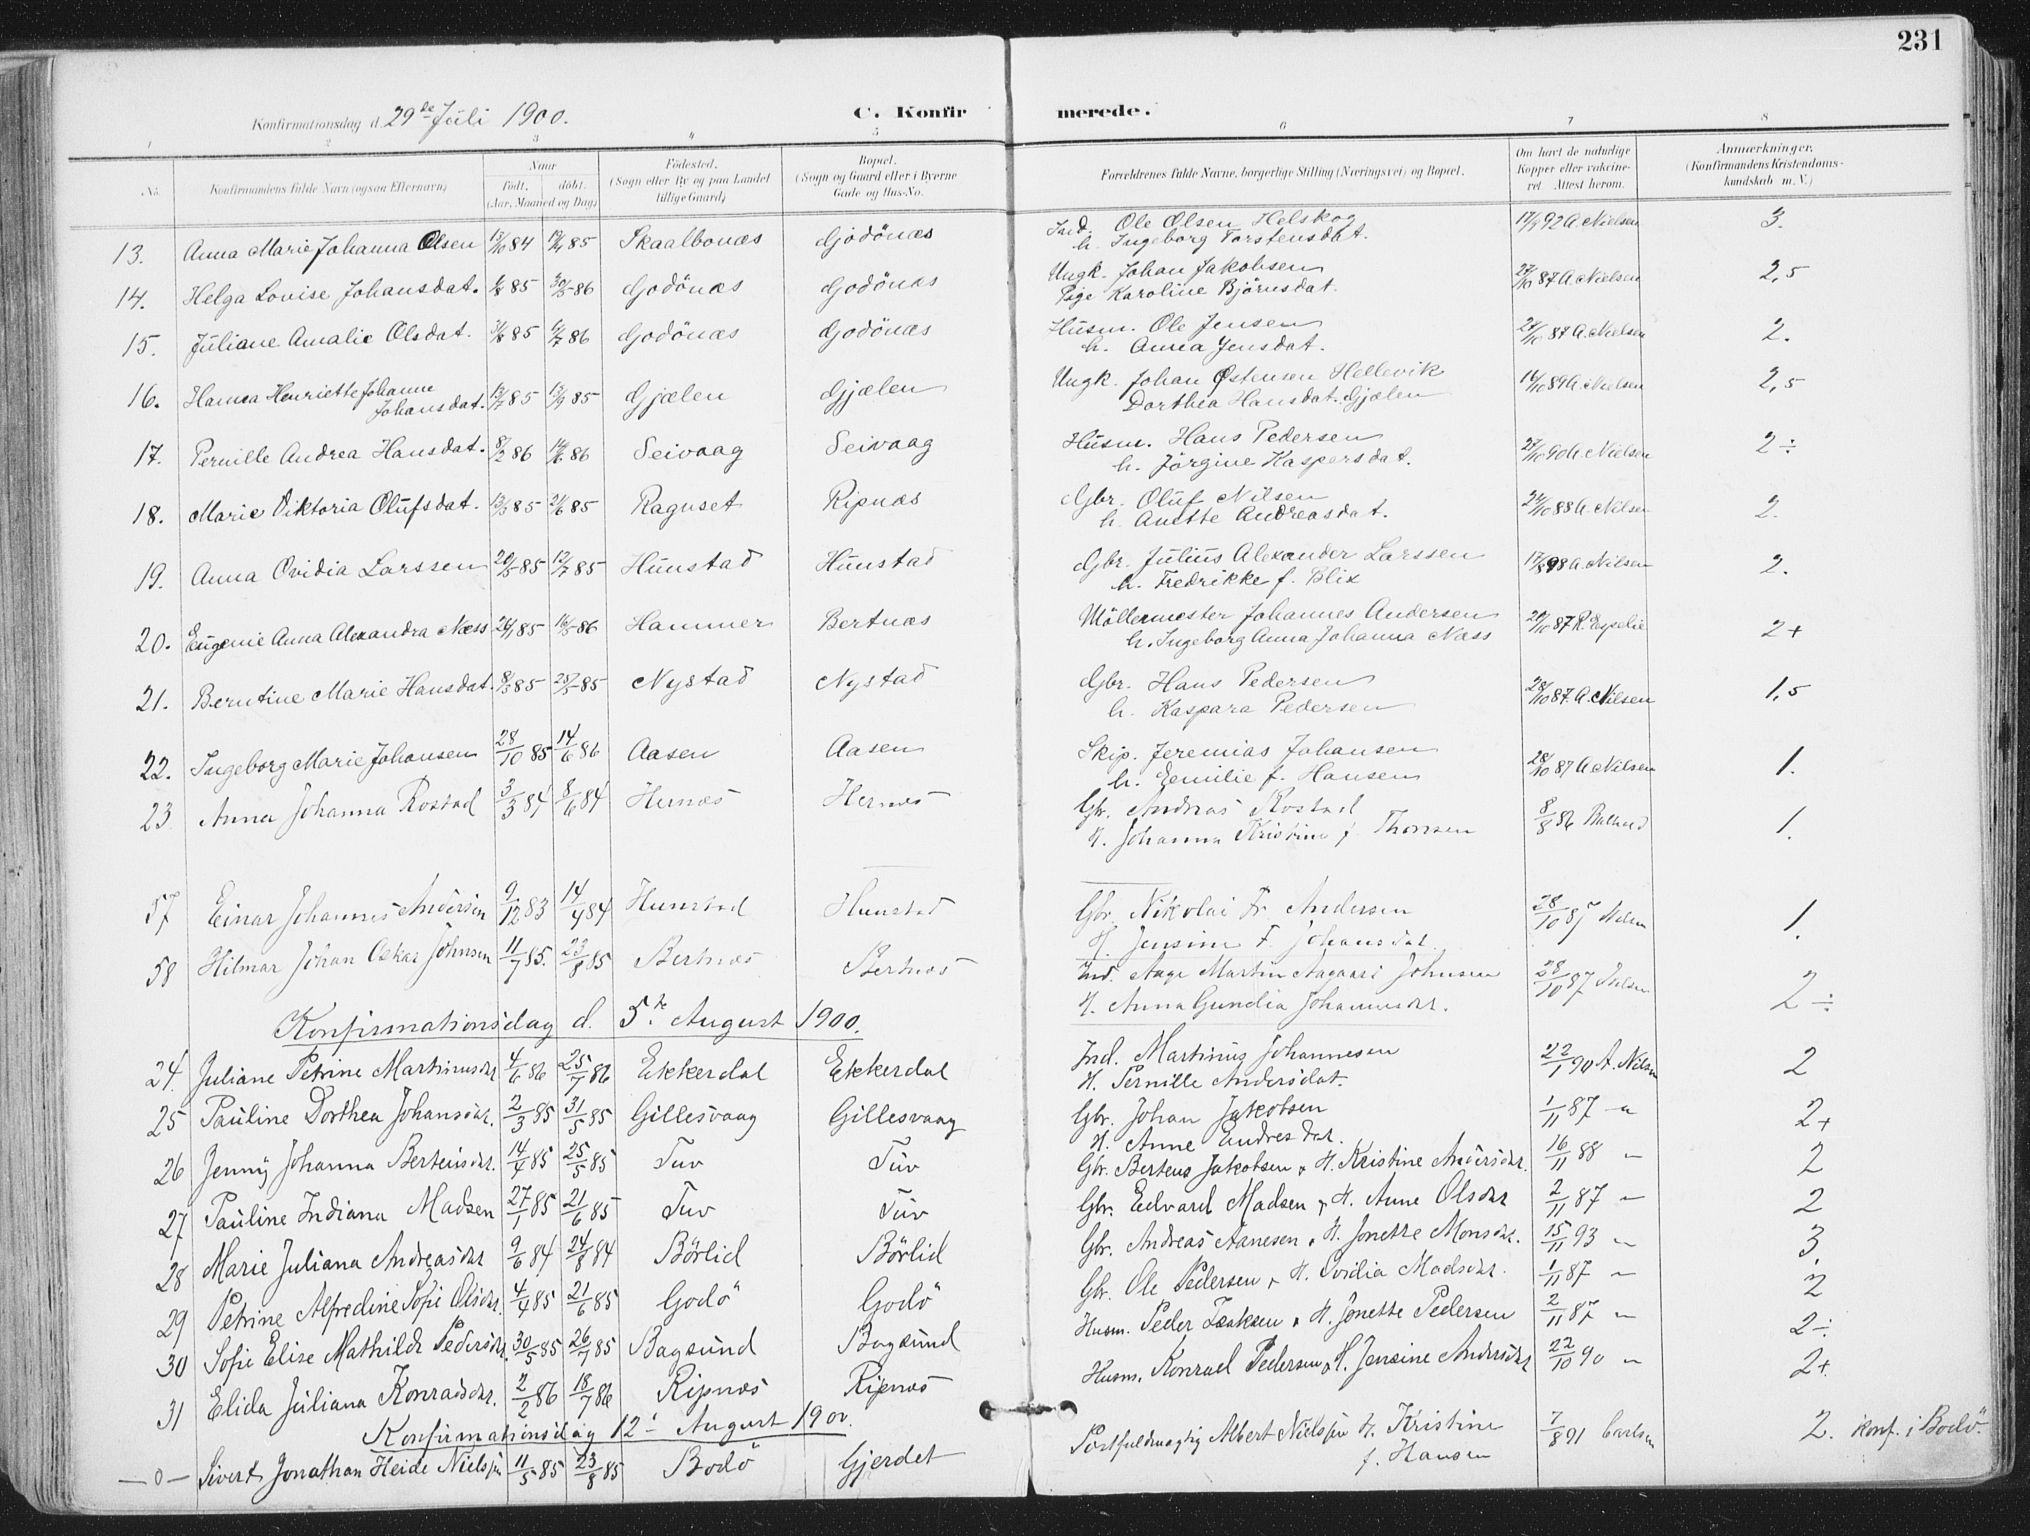 231
Konfirmationsdag d. 29de Juli 1900. C. Konfirmerede.
1 2 3 4 5 6 7 8
No. Konfirmandens fulde Navn (ogsaa Efternavn) Naar født. døbt. (Aar, Maaned og Dag) Fødested. (Sogn eller By og paa Landet tillige Gaard) Bopæl. (Sogn og Gaard eller i Byerne Gade og Hus-No. Forældrenes fulde Navne, borgerlige Stilling (Næringsvei) og Bopæl. Om havt de naturlige Kopper eller vakcineret Attest herom. Anmærkninger. (Konfirmandens Kristendomskundskab m. V.)
13. Anna Marie Johanna Olsen 84 85 Skaalbonæs Godönæs Ind. Ole Olsen Helskog 92 A. Nielsen 3.
h. Ingeborg Torstensdat.
14. Helga Lovise Johansdat. 85 86 Godönæs Godönæs Ungk. Johan Jakobsen 27/10 87 A. Nielsen 2,5
Pige Karoline Björnsdat.
15. Juliane Amalie Olsdat. 85 86 Godönæs Godönæs Husm. Ole Jensen 87 A. Nielsen 2.
h. Anna Jensdat.
16. Hanna Henriette Johanne Johansdat. 85 85 Gjælen Gjælen Ungk. Johan Østensen Hellevik 89 A. Nielsen 2,5
Dorthea Hansdat. Gjælen
17. Pernille Andrea Hansdat. 8/2 86 86 Seivaag Seivaag Husm. Hans Pedersen 90 A. Nielsen 2 ÷
h. Jörgine Kaspersdat.
18. Marie Viktoria Olufsdat. 85 85 Raguset Ripnæs Gbr. Oluf Nilsen 88 A. Nilsen 2.
h. Anette Andreasdat.
19. Anna Ovidia Larssen 20/5 85 12/7 85 Hunstad Hunstad Gbr. Julius Alexander Larssen 98 A. Nilsen 2.
h. Fredrikke f. Blix
20. Eugenie Anna Alexandra Næss 85 16/5 86 Hammer Bertnæs Möllemester Johannes Andersen 87 R. Espelie 2+
h. Ingeborg Anna Johanna Næss
21. Berntine Marie Hansdat. 8/3 85 25/5 85 Nystad Nystad Gbr. Hans Pedersen 28/10 87. A. Nilsen 1,5
h. Kaspara Pedersen
22. Ingeborg Marie Johansen 28/10 85 14/6 86 Aasen Aasen Skip. Jeremias Johansen 28/10 87 A. Nilsen 1.
h. Emilie f. Hansen
23 Anna Johanna Rostad 3/3 84 8/6 84 Hernæs Hernæs Gbr. Andreas Rostad 8/8 86 1.
H. Johanna Kristine f. Thomsen
57 Einar Johannes Andersen 9/12 83 14/4 84 Hunstad Hunstad Gbr. Nikolai Fr. Andersen 28/10 87 Nielsen 1.
H. Jensine F. Johansdat.
58 Hilmar Johan Oskar Johnsen 11/7 85. 23/8 85 Bertnæs Bertnæs Ind. Aage Martin Aagaard Johnsen 28/10 87 Nielsen 2 ÷
H. Anna Gundia Johannesdat.
Konfirmationsdag d. 5te August 1900.
24. Juliane Petrine Martinusdat. 4/6 86 25/7 86 Ekkerdal Ekkerdal Ind. Martinus Johannesen 22/1 90 A. Nilsen 2
H. Pernille Andersdat.
25 Pauline Dorthea Johansdat. 2/3 85 31/5 85 Gillesvaag Gillesvaag Gbr. Johan Jakobsen 1/11 87 - 2+
H. Anne Endresdat.
26 Jenny Johanna Bertensdat. 14/4 85 25/5 85 Tuv Tuv Gbr. Bertens Jakobsen & H. Kristine Andersdat. 16/11 88 - 2
27 Pauline Indiana Madsen 27/1 85 21/6 85 Tuv Tuv Gbr. Edvard Madsen & H. Anne Olsdat 2/11 87 - 2
28 Marie Juliana Andreasdat 9/6 84 24/8 84 Börlid Börlid Gbr. Andreas Aanesen & H. Jonette Monsdat. 15/11 93 - 3
29 Petrine Alfredine Sofie Olsdat. 4/4 85 21/6 85 Godö Godö Gbr. Ole Pedersen & H. Ovidia Madsdat. 1/11 87 - 2
30 Sofie Elise Mathilde Pedersdat. 30/5 85 26/7 85 Bagsund Bagsund Husm. Peder Isaksen & H. Jonette Pedersen 2/11 87 - 2 ÷
31 Elida Juliana Konradsdat. 2/2 86 18/7 86 Ripnæs Ripnæs Husm. Konrad Pedersen & H. Jensine Andersdat 22/10 90 - 2+
Konfirmationsdag 12te August 1900.
—o— Sivert Jonathan Heide Nielsen 11/5 85 23/8 85 Bodö Gjerdet Postfuldmægtig Albert Nielsen H. Kristine 7/8 91 Carlsen 2. konf. i Bodö.
f. Hansen